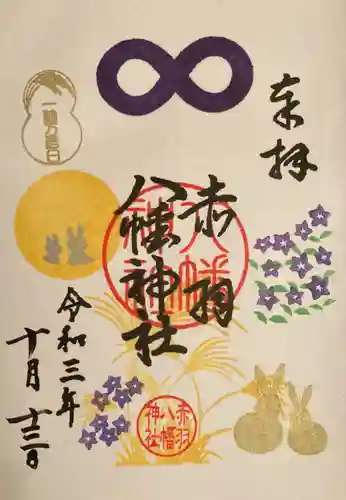 奉拝
赤羽
八幡神社
令和三年
十月十三日
一粒万倍日
八幡
神社
赤羽
八幡
神社